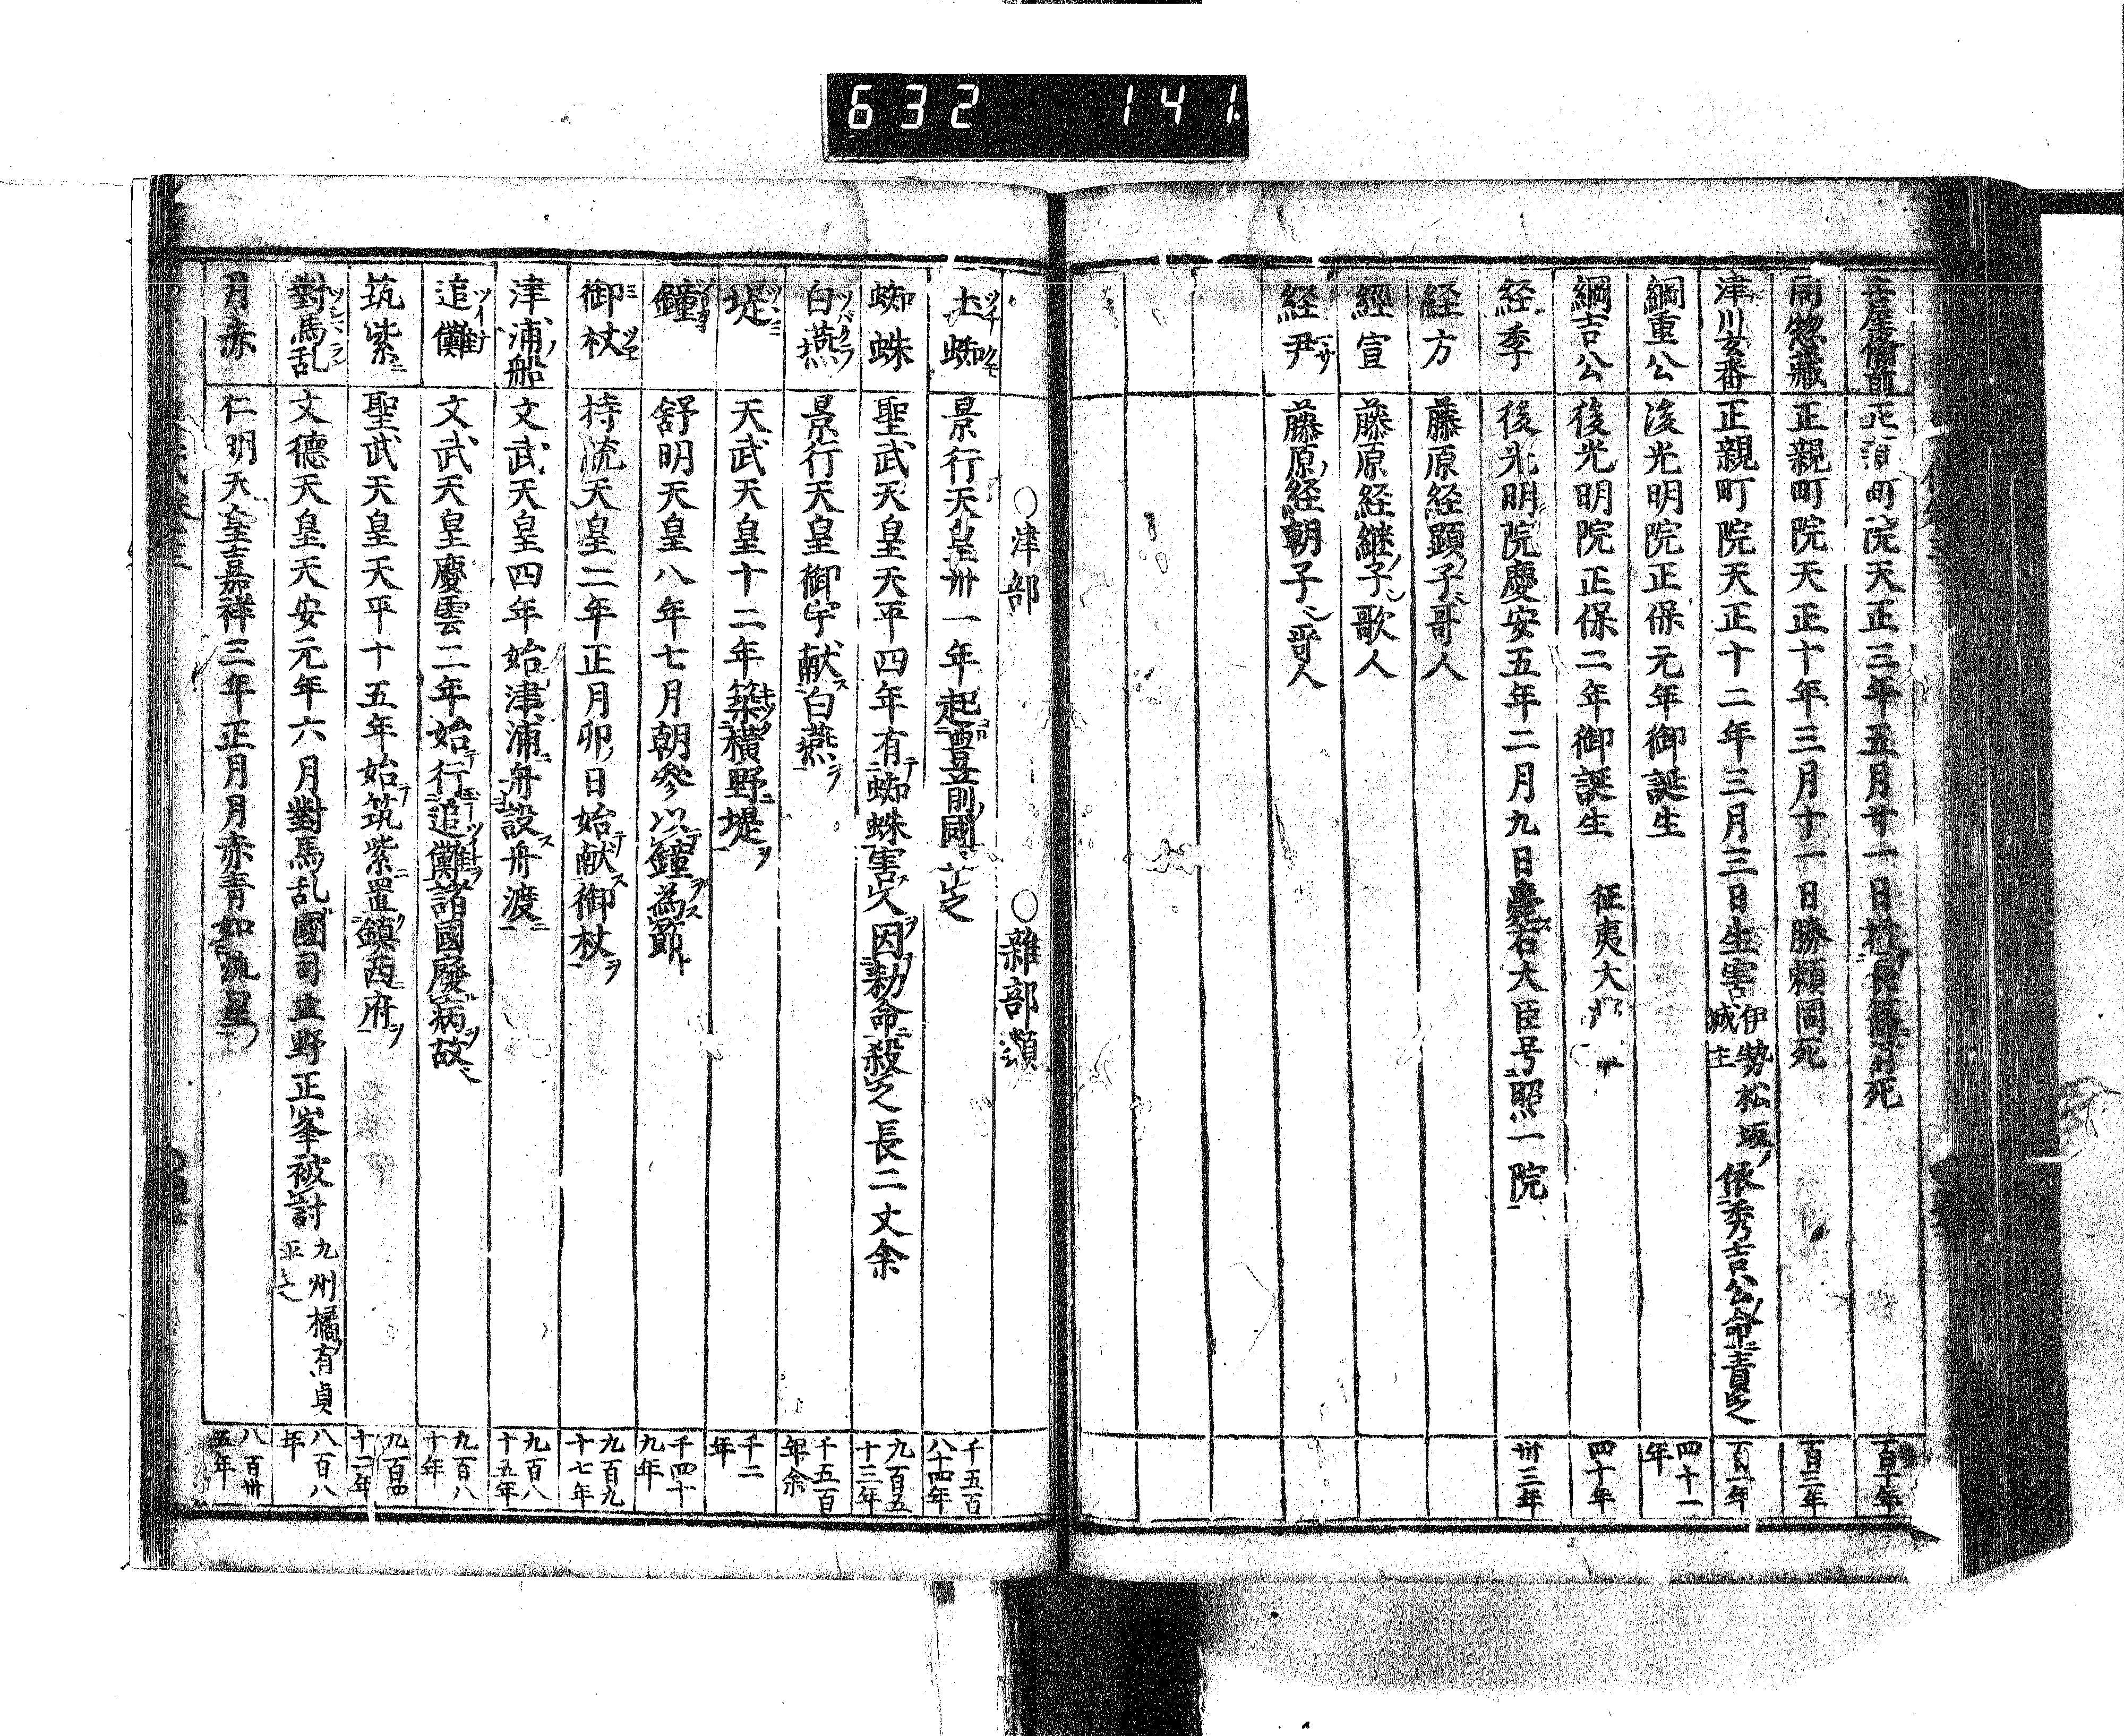 632 141
土屋備前 正親町院天正三年五月廿一日於長篠討死 百十年
同惣藏 正親町院天正十年三月十一日勝頼同死 百三年
津川玄番 正親町院天正十二年三月三日生害伊勢松坂ノ城主依秀吉公ノ命ニ責之 百一年
綱重公 後光明院正保元年御誕生 四十一年
綱吉公 後光明院正保二年御誕生 征夷大 四十年
経季 後光明院慶安五年二月九日薨右大臣号照一院 卅三年
経方 藤原経顕ノ子哥人
經宣 藤原経継ノ子歌人
経尹 藤原経朝子哥人
○津部 ○雜部類
土蜘 ツチクモ 景行天皇卅一年起豊前國ニ亡之 千五百八十四年
蜘蛛 聖武天皇天平四年有テ蜘蛛害ス人ヲ因勅命ニ殺之長二丈余 九百五十三年
白燕 ツバクラ 景行天皇御宇献ス白燕ヲ 千五百年余
堤 ツヽミ 天武天皇十二年築キツク横野ニ堤ヲ 千二年
鐘 舒明天皇八年七月朝參以テ鐘ヲ為ス節ト 千四十九年
御杖 ミツエ 持統天皇二年正月卯ノ日始テ献ス御杖ヲ 九百九十七年
津ノ浦ノ船 文武天皇四年始津ノ浦ニ舟設ス舟渡ニ 九百八十五年
追儺 ツイナ 文武天皇慶雲二年始テ行追儺ツイナヲ諸國廢病ヲ故ニ 九百八十年
筑紫ニ 聖武天皇天平十五年始テ筑紫ニ置ク鎮西府ヲ 九百四十二年
對馬乱 ツシマラン 文德天皇天安元年六月對馬乱國司立野正峯被討九州橘有貞平之 八百八年
月赤 仁明天皇嘉祥三年正月月赤青如流星 八百卅五年